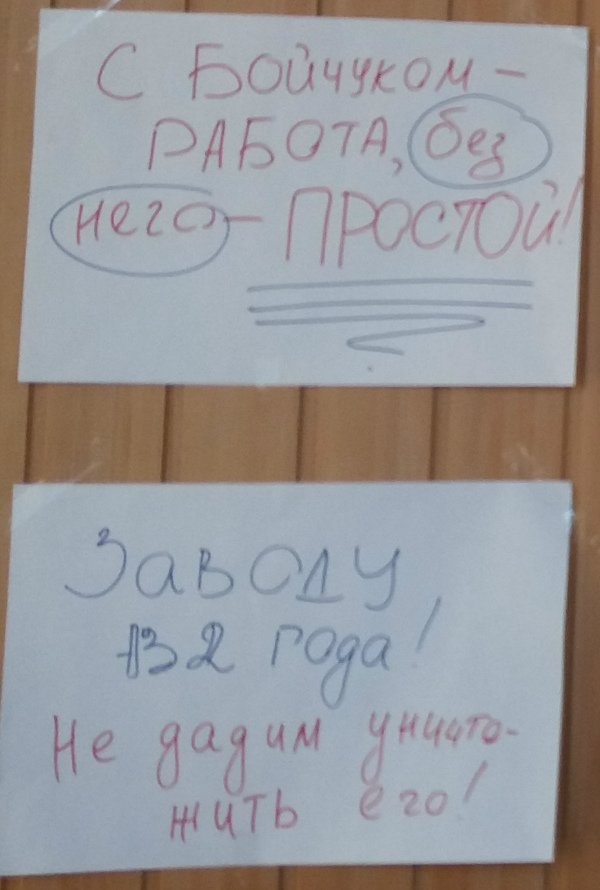 С БОЙЧУКОМ –
РАБОТА, без
него – ПРОСТОЙ!
ЗАВОДУ
132 года!
Не дадим уничто-
жить его!